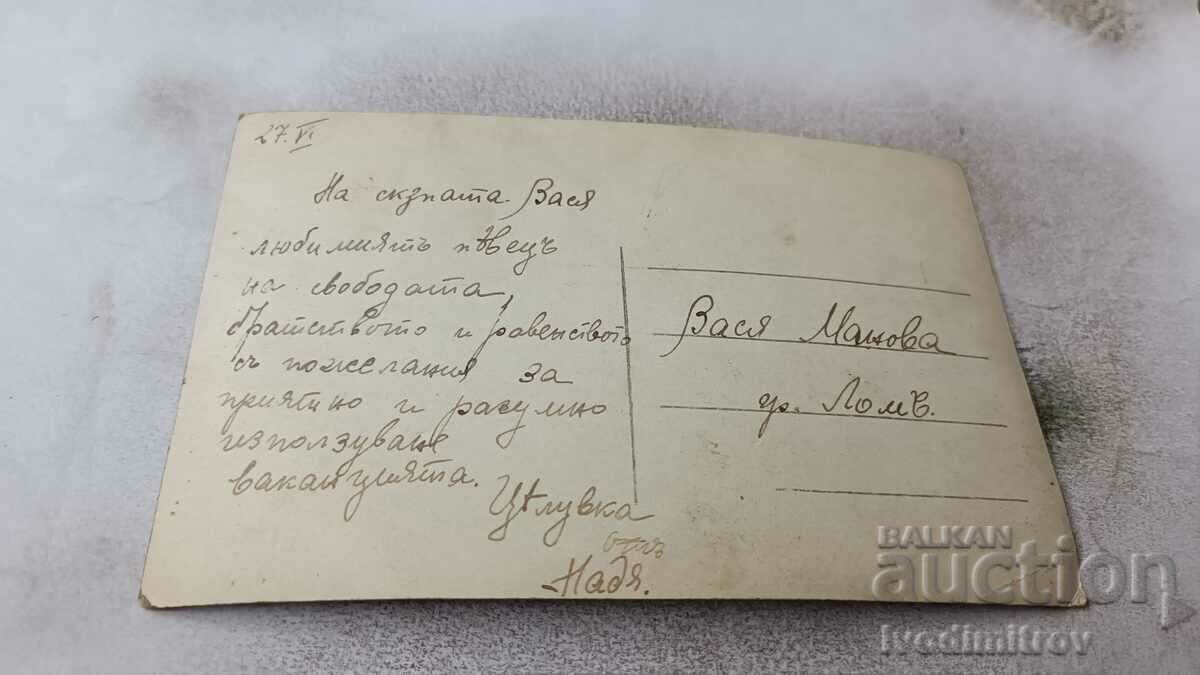 27.VI.
На скѫпата Вася
любимиятъ пѣвецъ
на свободата,
братството и равенството
съ пожелания за
приятно и разумно
използуване
ваканцията.
Цѣлувка
отъ
Надя.
Вася Манова
гр. Ломъ.
BALKAN
auction
ivodimitrov